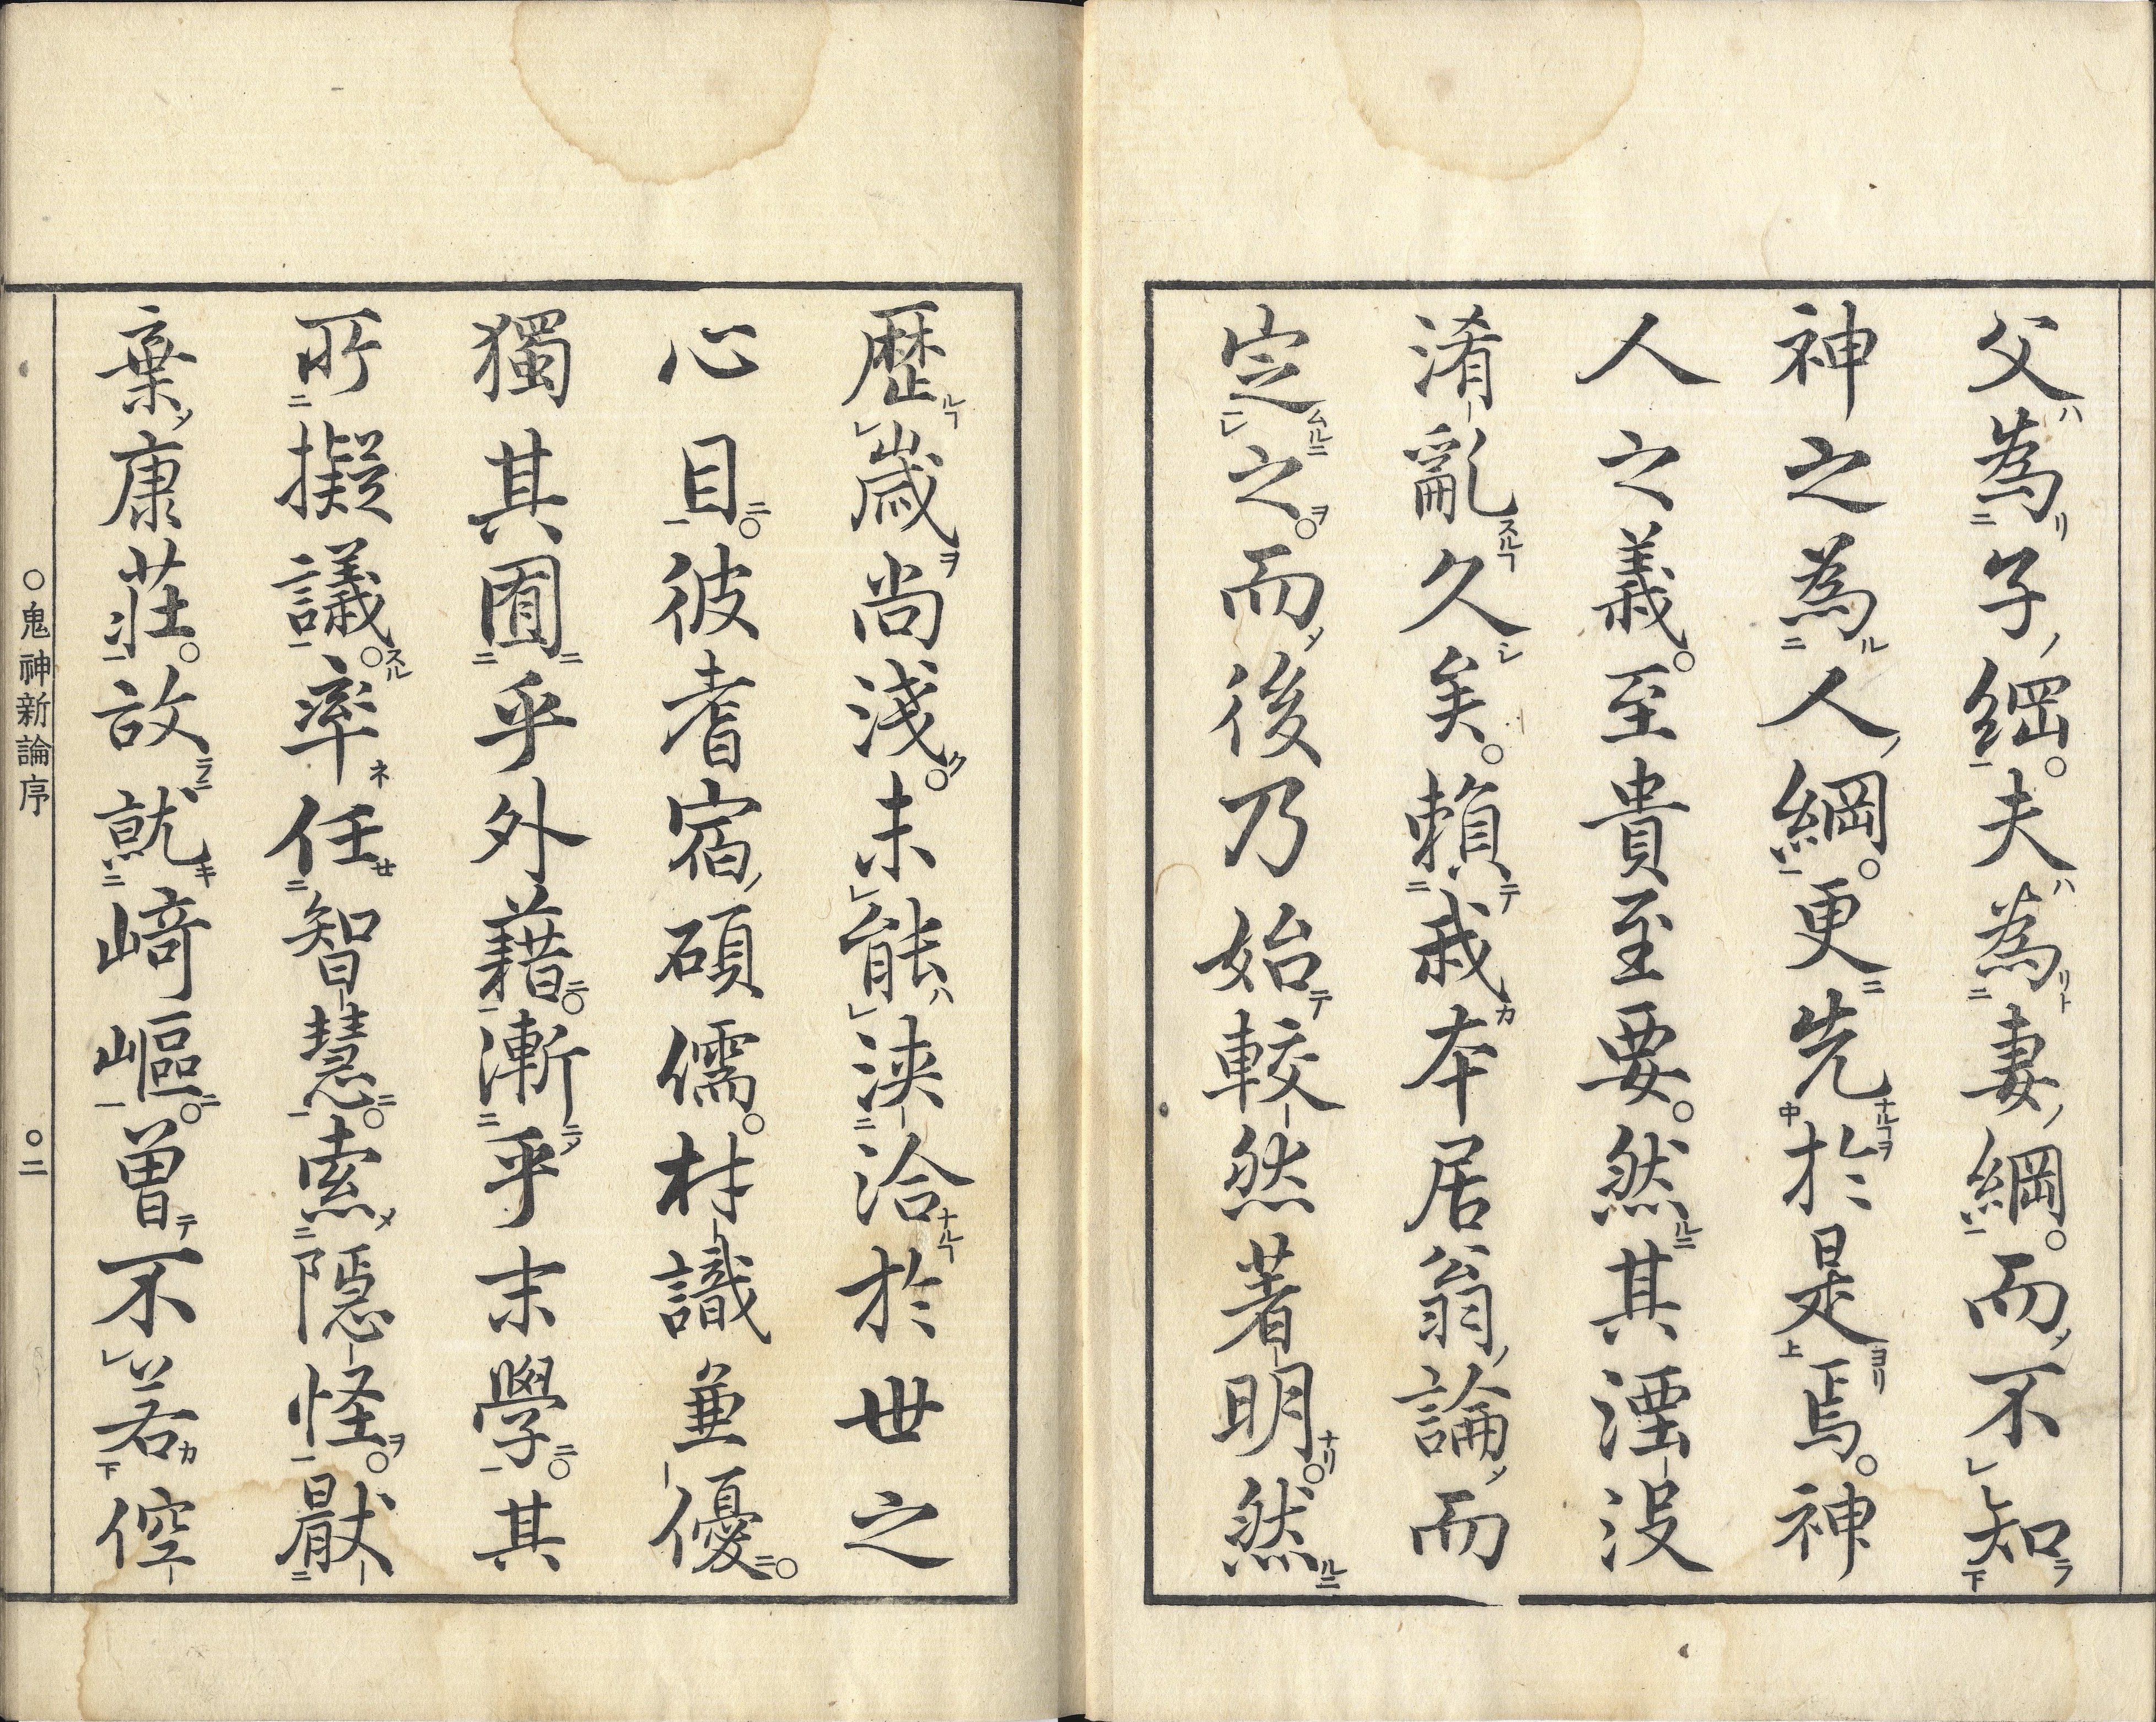 父為子綱。夫為妻綱。而不知
神之為人綱。更先於是焉。神
人之義。至貴至要。然其湮没
淆亂久矣。賴我本居翁論而
定之。而後乃始較然著明。然
歷歲尚淺。未能浹洽於世之
心目。彼耆宿碩儒。材識兼優。
獨其囿乎外藉。漸乎末學。其
所擬議。率任智慧。索隱怪。厭
棄康莊。故就﨑嶇。曽不若倥
○鬼神新論序 ○二